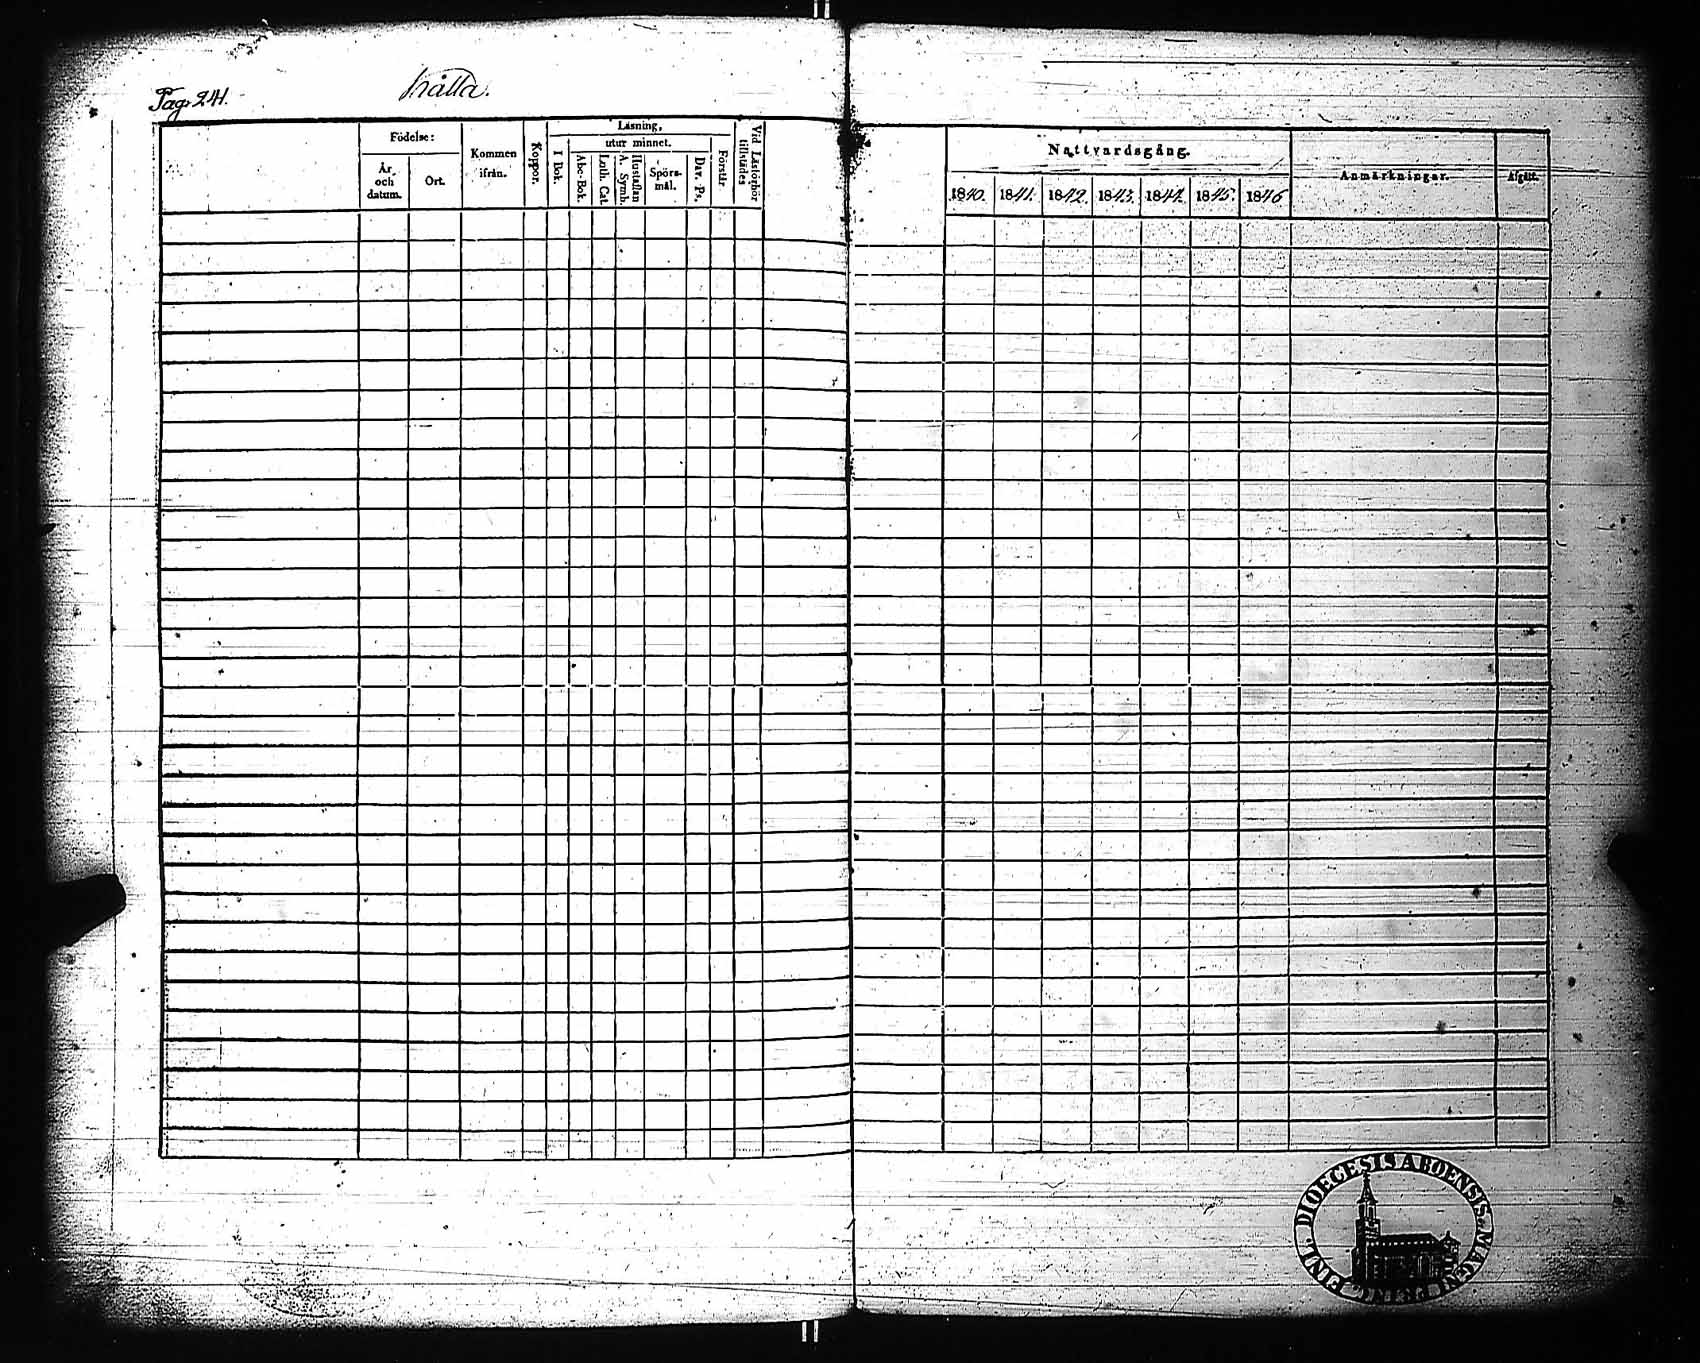 Pag. 241.
Kålla.
Födelse:
År och datum.
Ort.
Kommen ifrån.
Koppor.
Läsning,
I Bok.
utur minnet.
Abc-Bok.
Luth. Cat.
Hustaflan A. Symb.
Spörs-mål.
Dav. Ps.
Förstår
Vid Läsförhör tillstädes
Nattvardsgång.
1840. 1841. 1842. 1843. 1844. 1845. 1846
Anmärkningar.
Afgått.
FINL. DIOECESIS ABOENSIS. MAGNI PRINC.